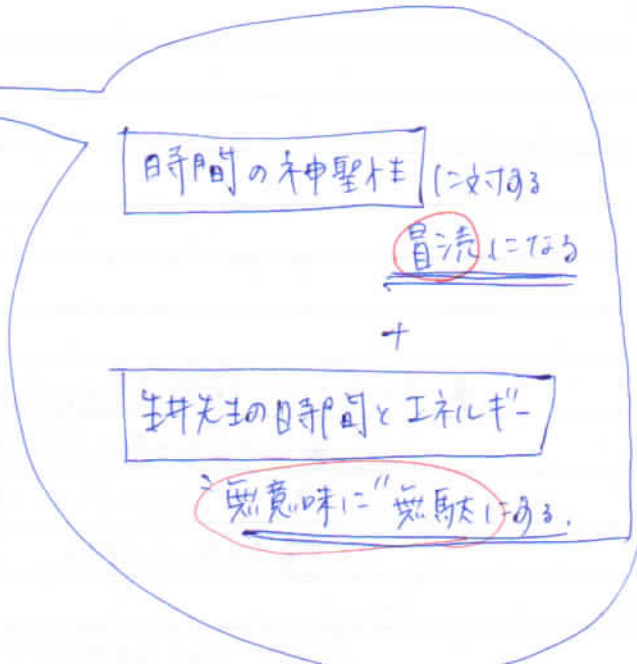 時間の神聖性に対する
冒涜になる
+
生井先生の時間とエネルギー
"無意味に"無駄にする.